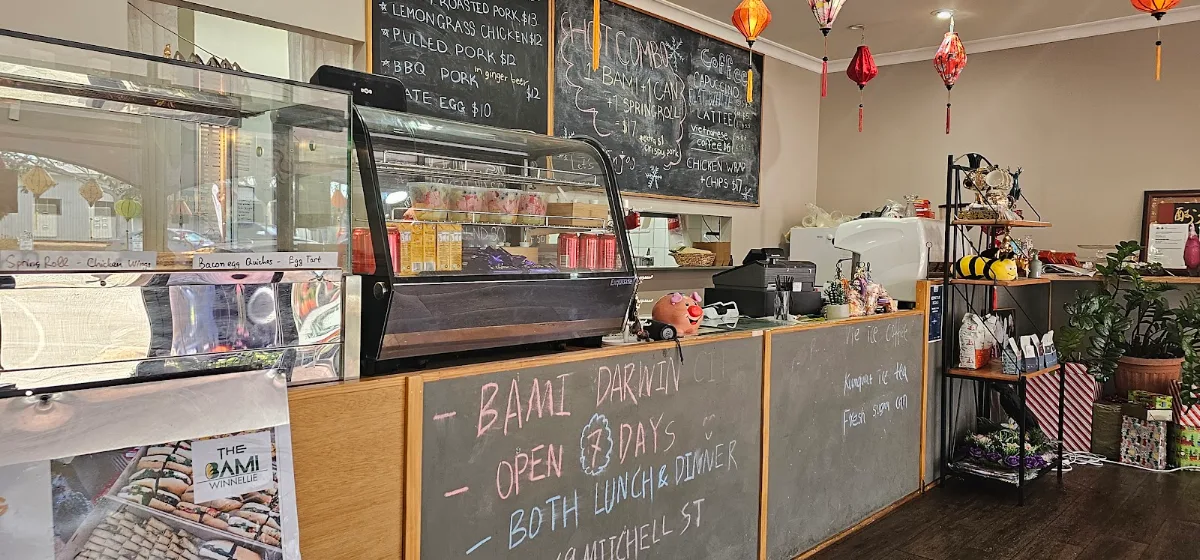 ROASTED PORK $13
* LEMONGRASS CHICKEN $12
* PULLED PORK $12
* BBQ PORK in ginger beer $12
ATE EGG $10
HOT COMBO
1 BAMI + 1 CAN
+ 1 SPRINGROLL
= $17
COFFEE
CAPUCCINO
FLAT WHITE
LATTEE
vietnamese
coffee
CHICKEN WRAP
+ CHIPS $17
Spring Roll - Chicken Wings
Bacon egg Quiches - Egg Tart
- BAMI DARWIN
- OPEN 7 DAYS
- BOTH LUNCH & DINNER
MITCHELL ST
ice
Kumquat ice tea
Fresh sugar can
THE
BAMI
WINNELLIE